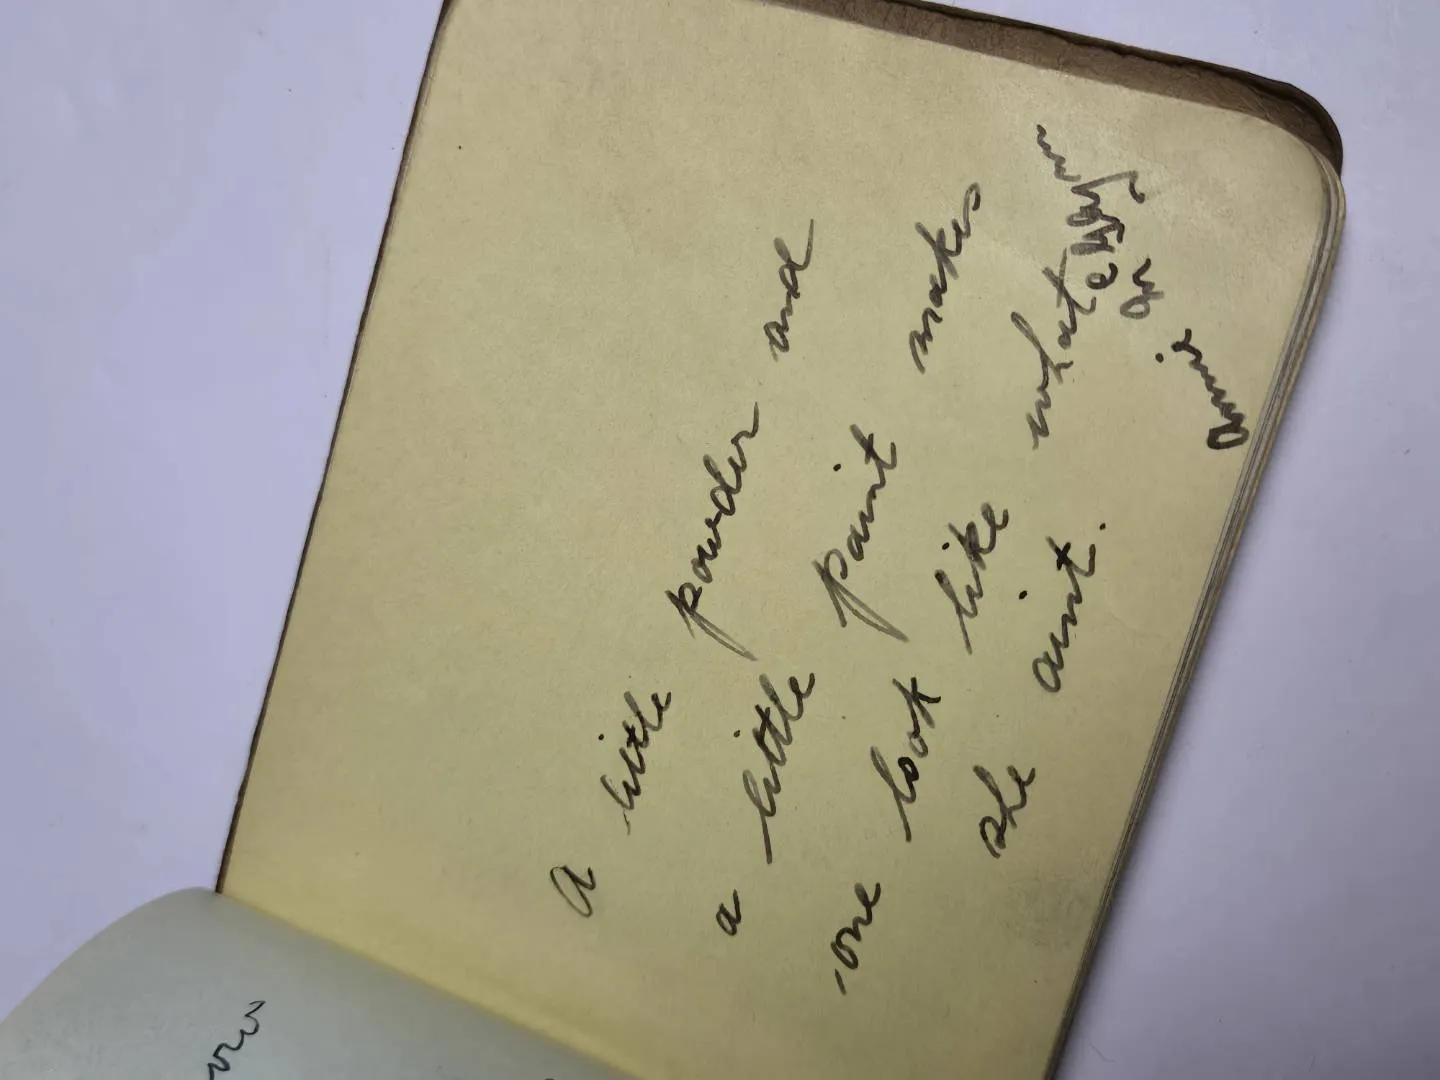 A little powder and
a little paint makes
one look like what
she aint.